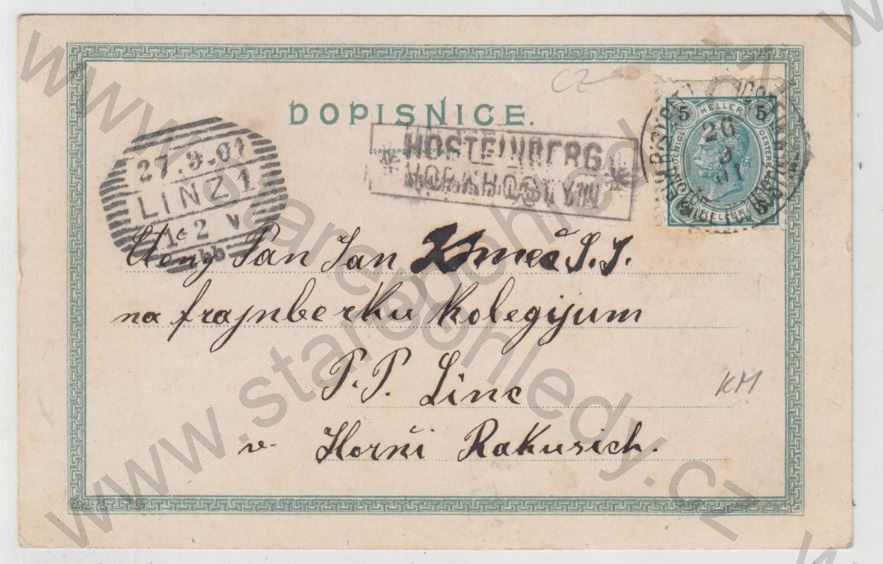 DOPISNICE.
HOSTEINBERG
HORA HOSTÝN
5 HELLER 5
26
27.9.01
LINZ 1
1-2 V
Cteny Pan Jan S. J.
na frajnberku kolegijum
P. P. Linc
v Horńi Rakusich.
CZ
KM
www.starepohledy.cz